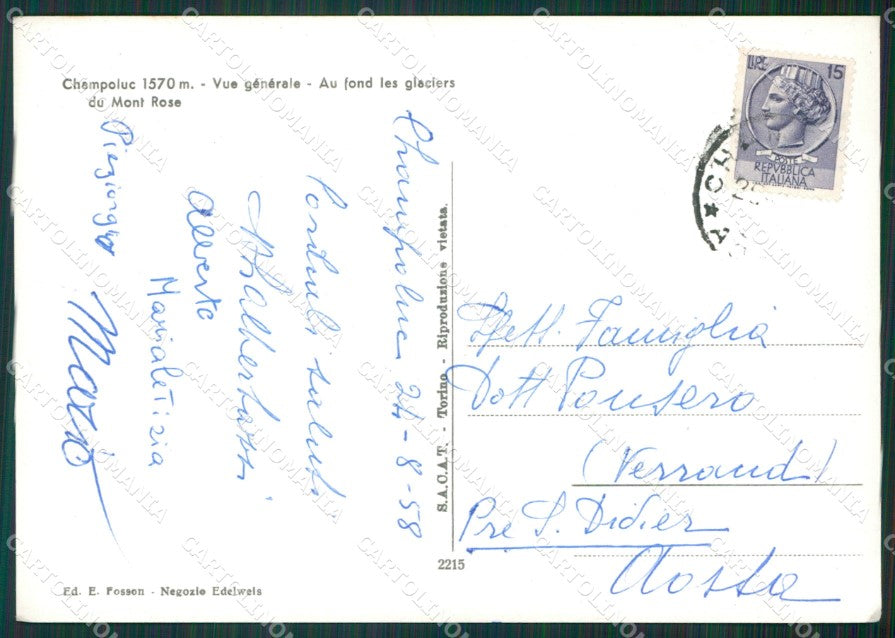 Champoluc 1570 m. - Vue générale - Au fond les glaciers
du Mont Rose
Champoluc 24-8-58
Cordiali saluti
Alberto
Marialetizia
Piergiorgio
Mario
S.A.C.A.T. - Torino - Riproduzione vietata.
2215
Ed. E. Fosson - Negozio Edelweis
LIRE 15
POSTE
REPVBBLICA
ITALIANA
CH
Spett. Famiglia
Dott Ponsero
(Verrand)
Pre S. Didier
Aosta
CARTOLINOMANIA